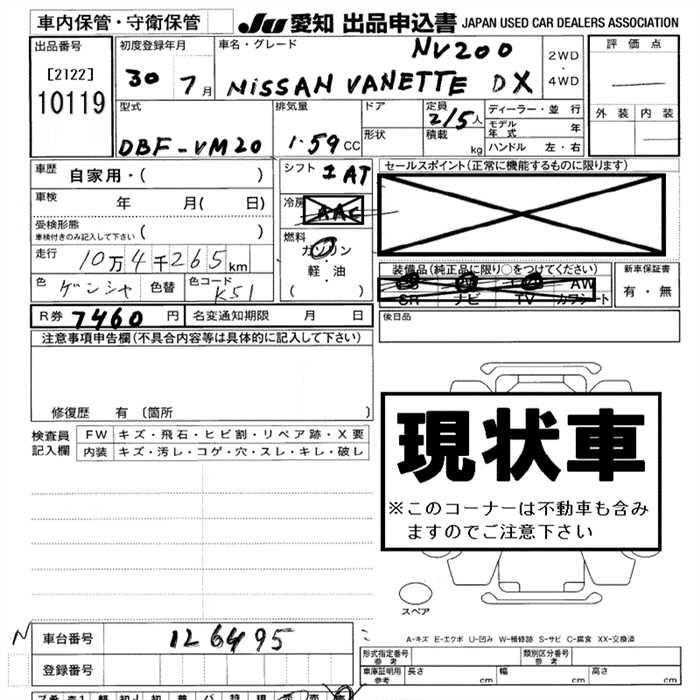 車内保管・守衛保管 JU 愛知 出品申込書 JAPAN USED CAR DEALERS ASSOCIATION
出品番号 [2122] 10119
初度登録年月 30 7月
車名・グレード NV200 NISSAN VANETTE DX
2WD・4WD
評価点
外装 内装
型式 DBF-VM20
排気量 1.59CC
ドア
形状
定員 2/5人
積載 kg
ディーラー・並行
モデル年式 年
ハンドル 左・右
車歴 自家用・( )
車検 年 月( 日)
受検形態 ( )
車検付きのみ記入して下さい
走行 10万4千265km
色 ゲンシャ 色替 色コード K51
シフト IAT
冷房 AAC
燃料 ガソリン・軽・油 ( )
セールスポイント(正常に機能するものに限ります)
装備品(純正品に限り○をつけてください)
AW
SR ナビ TV カワシート
新車保証書 有・無
R券 7460円 名変通知期限 月 日
後日品
注意事項申告欄(不具合内容等は具体的に記入して下さい)
修復歴 有 [箇所 ]
検査員記入欄
FW キズ・飛石・ヒビ割・リペア跡・X要
内装 キズ・汚レ・コゲ・穴・スレ・キレ・破レ
現状車
※このコーナーは不動車も含み
ますのでご注意下さい
スペア
N 車台番号 126495
登録番号
A-キズ E-エクボ U-凹み W-補修跡 S-サビ C-腐食 XX-交換済
形式指定番号 参考 類別区分番号 参考
車庫証明用 参考 長さ cm 幅 cm 高さ cm